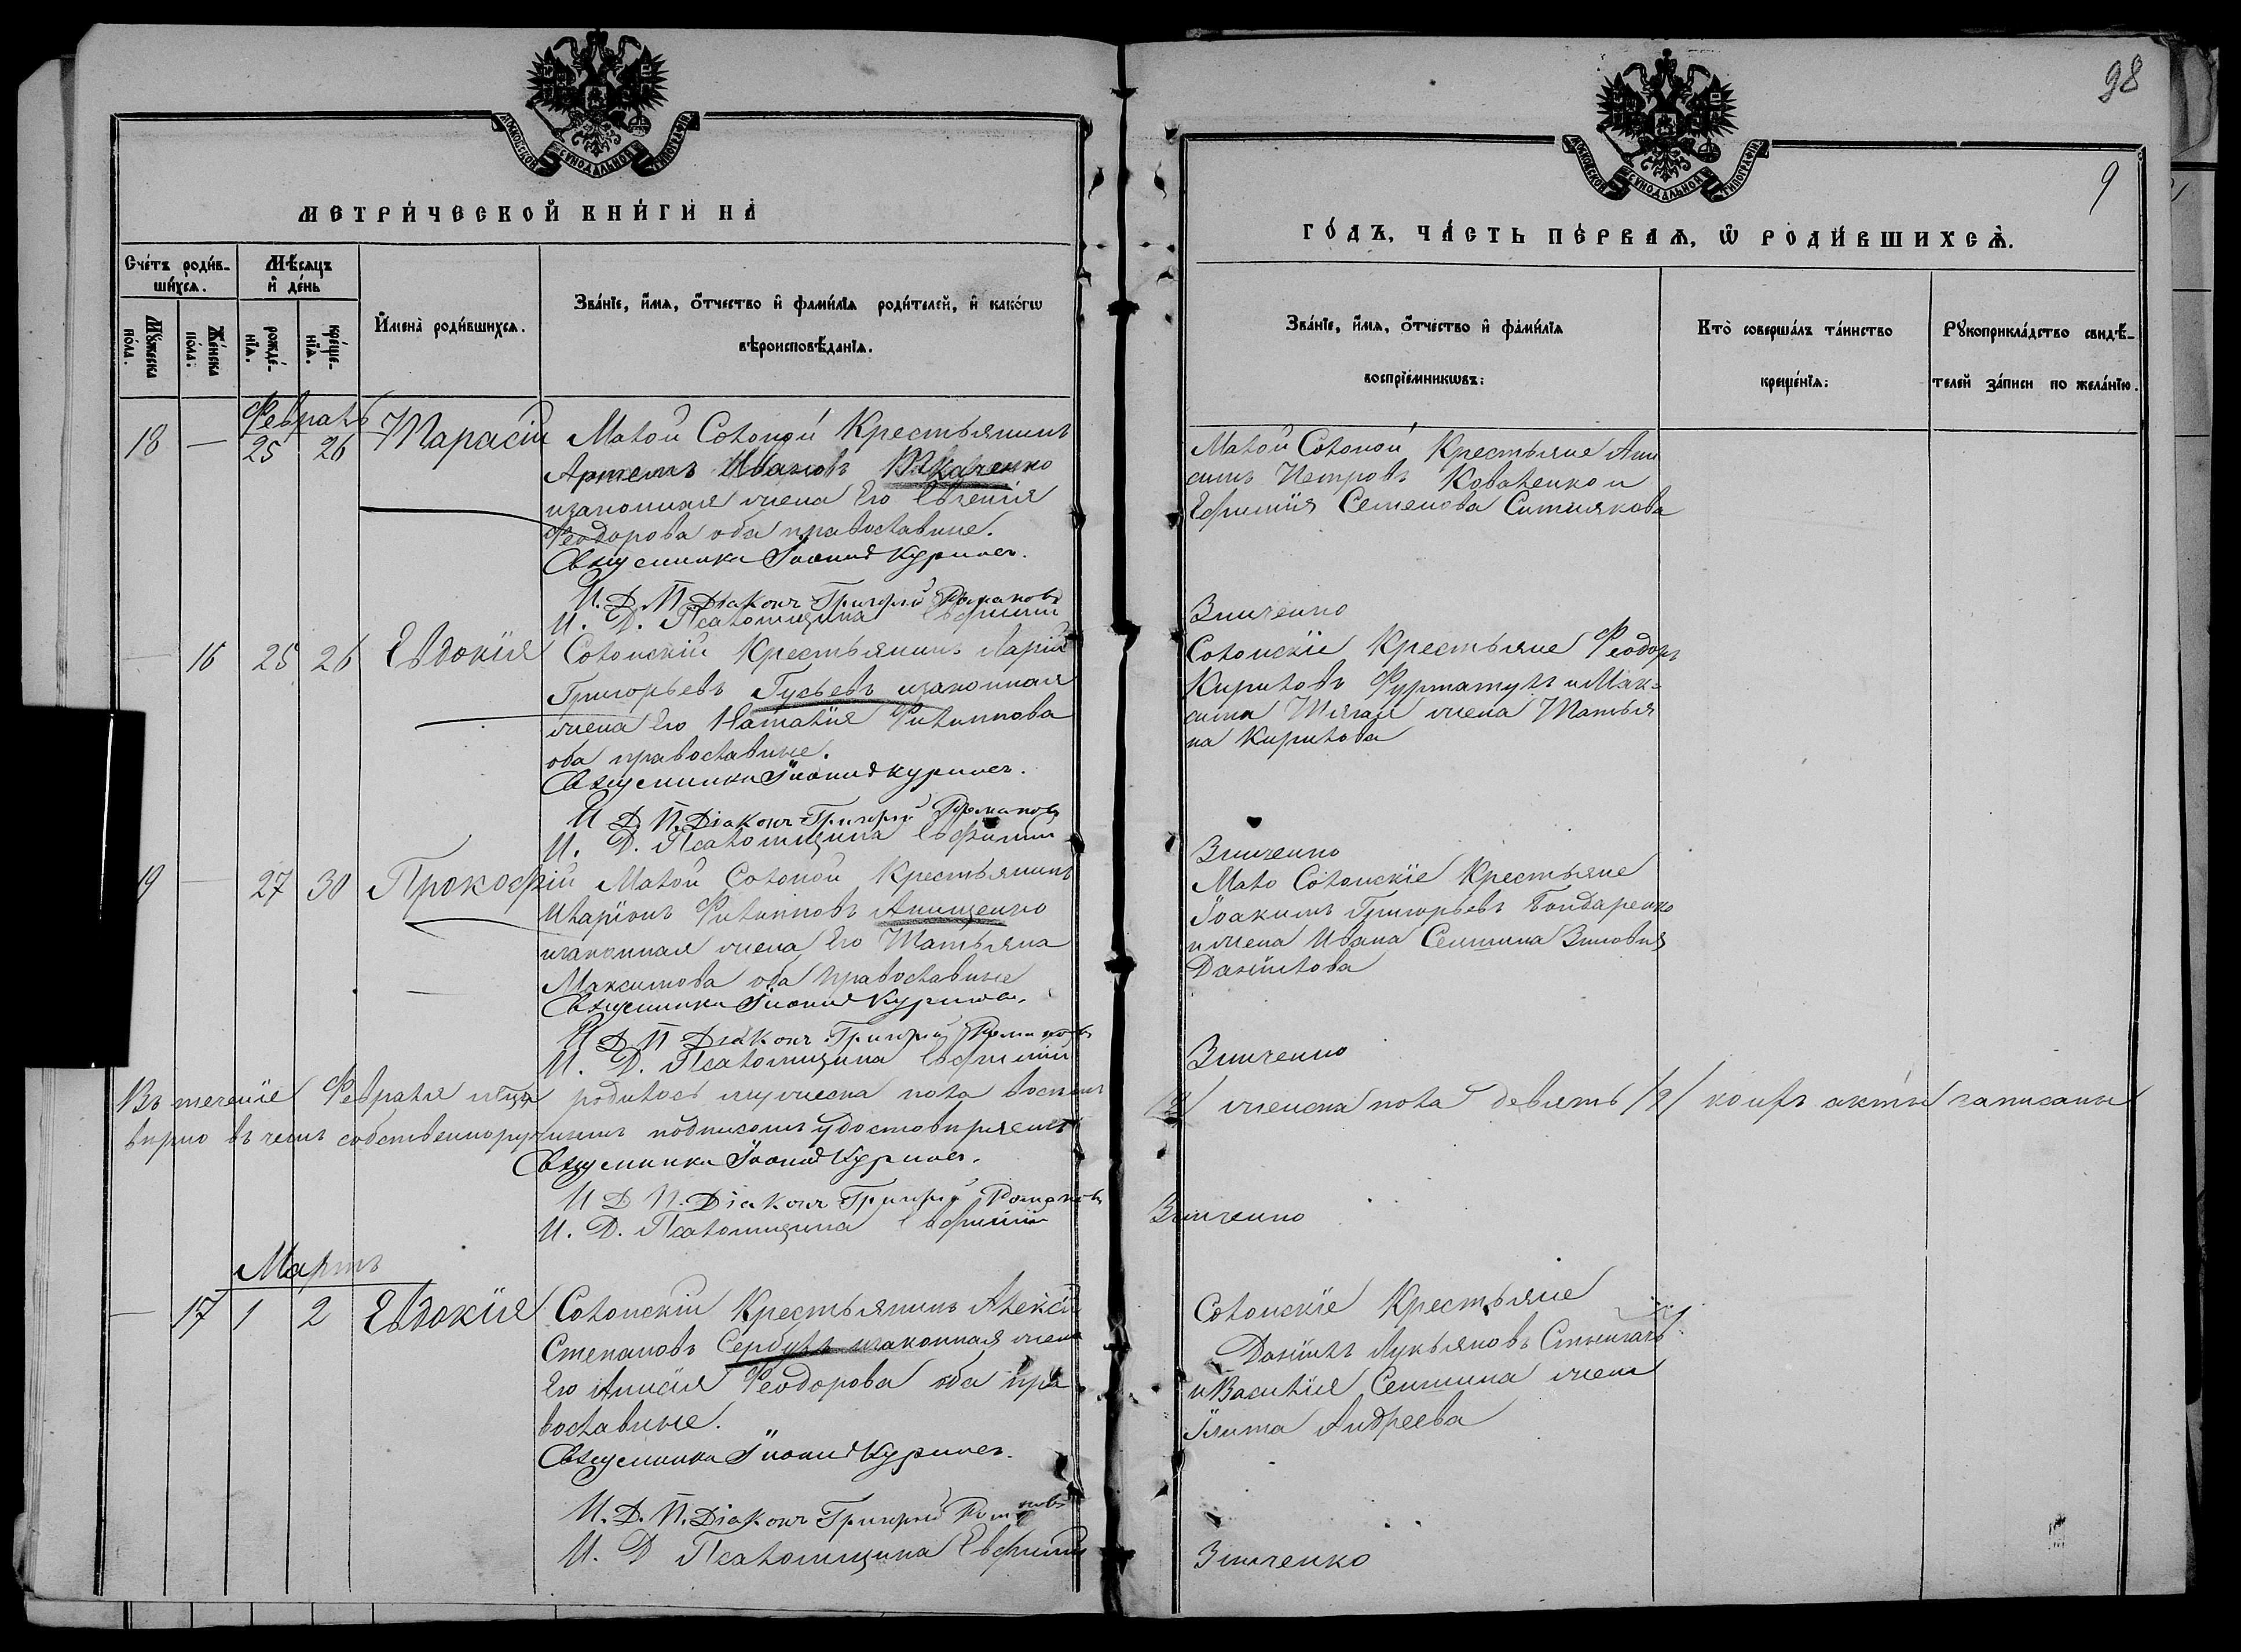 98
9
МОСКОВСКОЙ СѴНОДАЛЬНОЙ ТИПОГРАФІИ
МЕТРИ́ЧЕСКОЙ КНИ́ГИ НА
МОСКОВСКОЙ СѴНОДАЛЬНОЙ ТИПОГРАФІИ
ГО́ДЪ, ЧА́СТЬ ПЕ́РВАѦ, Ѡ РОДИ́ВШИХСѦ.
Сче́тъ роди́в-
ши́хсѧ.
Мꙋ́жеска по́ла.
Же́нска по́ла.
Мѣ́сѧцъ
и҆ де́нь
рожде́-нїѧ.
креще́-нїѧ.
И҆мена̀ роди́вшихсѧ.
Зва́нїе, и҆́мѧ, ѻ҆́тчество и҆ фами́лїѧ роди́телей, и҆ како́гѡ
вѣроисповѣ́данїѧ.
Зва́нїе, и҆́мѧ, ѻ҆́тчество и҆ фами́лїѧ
воспрїе́мникѡвъ:
Кто̀ соверша́лъ та́инство
креще́нїѧ:
Рꙋкоприкла́дство свидѣ́-
телей за́писи по жела́нїю.
Февраль
18 — 25 26 Тарасій Малой Солоной Крестьянинъ
Артемъ Ивановъ Ткаченко
изаконная жена Его Евгенія
Феодорова оба православные.
Священникъ Іоаннъ Куриленъ.
И. Д. П. Діаконъ Григорій Романовъ
И. Д. Псаломщика Евфимій
Малой Солоной Крестьяне Ани
симъ Петровъ Коваленко и
Ефимія Семенова Ситнякова
Зинченко
— 16 25 26 Евдокія Солонскій Крестьянинъ Ларіи
Григорьевъ Гусьевъ изаконная
жена Его Наталія Филиппова
оба православные.
Священникъ Іоаннъ Куриленъ.
И. Д. П. Діаконъ Григорій Романовъ
И. Д. Псаломщика Евфимій
Солонскіе Крестьяне Феодоръ
Кириловъ Фурматулъ и Мак-
сима жена Татья
на Кирилова
Зинченко
19 — 27 30 Прокофій Малой Солоной Крестьянинъ
Иларіонъ Филипповъ Анищенко
изаконная жена Его Татьяна
Максимова оба православные
Священникъ Іоаннъ Куриленъ.
И. Д. П. Діаконъ Григорій Романовъ
И. Д. Псаломщика Евфимій
Мало Солонскіе Крестьяне
Іоакимъ Григорьевъ Бондаренко
и жена Ивана Сеншина Зиновия
Даніилова
Зинченко
Въ теченіе Февраля мѣца родилось мужеска пола восемь /8/ женска пола девять /9/ коихъ акты записаны
вѣрно въ чемъ собственноручнымъ подписомъ удостовѣряемъ
Священникъ Іоаннъ Куриленъ.
И Д П. Діаконъ Григорій Романовъ
И. Д. Псаломщика Евфимій Зинченко
Мартъ
— 17 1 2 Евдокія Солонскій Крестьянинъ Алексій
Степановъ Сербулъ изаконная жена
Его Анисія Феодорова оба пра
вославные.
Священникъ Іоаннъ Куриленъ.
И. Д. П. Діаконъ Григорій Романовъ
И. Д Псаломщика Евфимій
Солонскіе Крестьяне
Даніилъ Лукьяновъ
и Василія Сеншина жена
Андреева
Зинченко